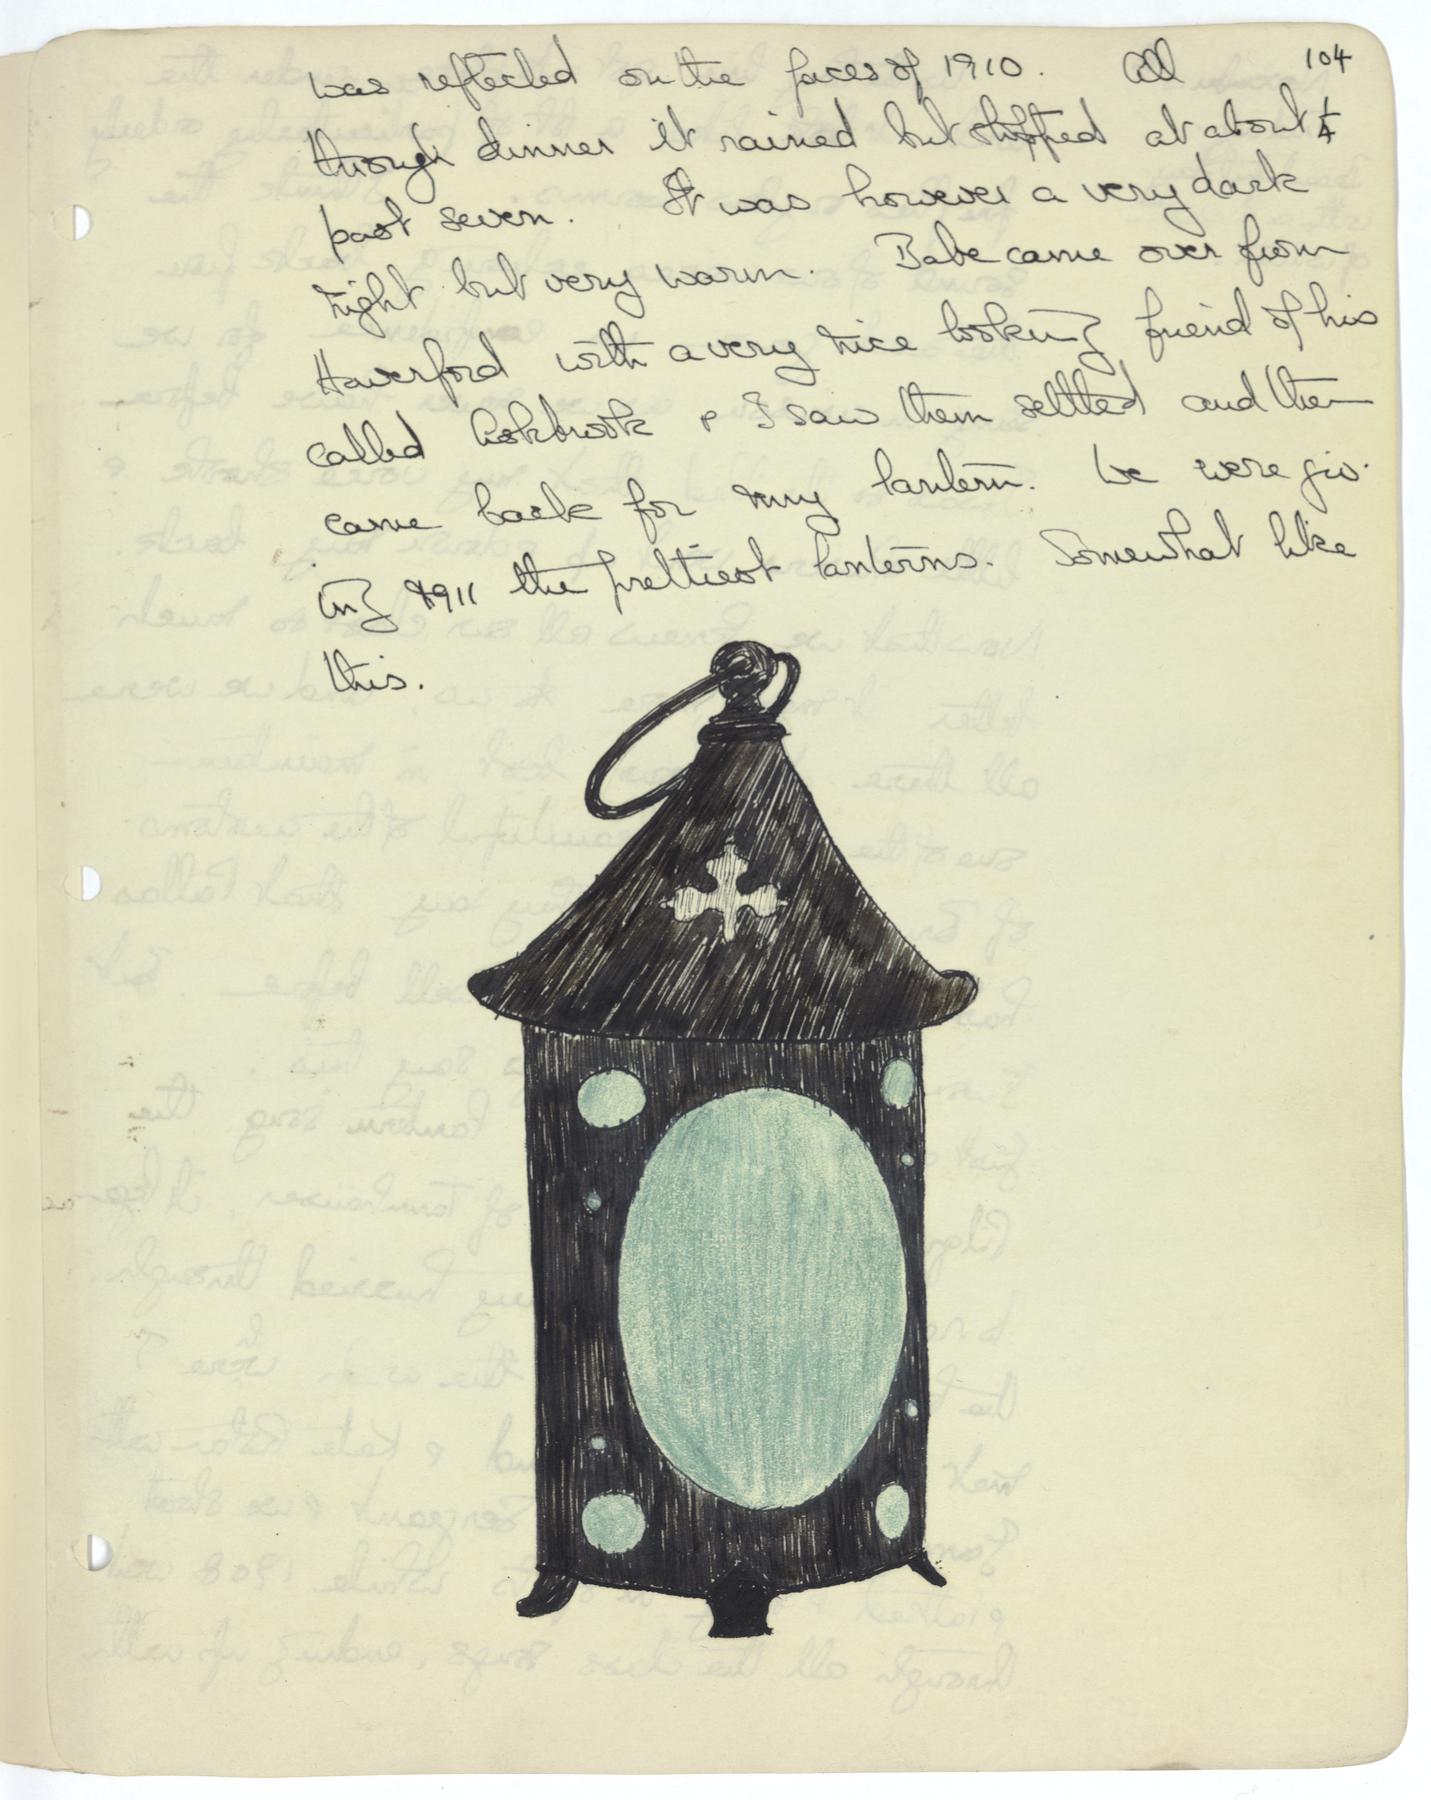 104
was reflected on the faces of 1910. All
through dinner it rained but stopped at about ¼
past seven. It was however a very dark
night but very warm. Babe came over from
Haverford with a very nice looking friend of his
called Ashbrook & I saw them settled and then
came back for my lantern. We were giv-
ing 1911 the prettiest lanterns. Somewhat like
this.